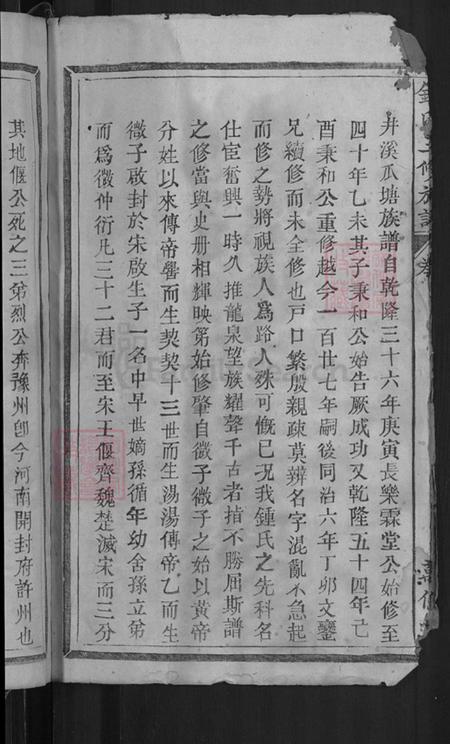 井溪瓜塘族譜自乾隆三十六年庚寅長樂霖堂公始修至
四十年乙未其子秉和公始告厥成功又乾隆五十四年己
酉秉和公重修越今一百廿七年嗣後同治六年丁卯文鑒
兄續修而未全修也戶口繁殷親疎莫辨名字混亂不急起
而修之勢將視族人爲路人殊可慨已况我鍾氏之先科名
仕宦奮興一時久推龍泉望族耀聲千古者指不勝屈斯譜
之修當與史册相輝映第始修肇自微子微子之始以黃帝
分姓以來傳帝嚳而生契契十三世而生湯湯傳帝乙而生
微子啟封於宋啟生子一名中早世嫡孫循年幼舍孫立弟
而爲微仲衍凡三十二君而至宋王偃齊魏楚滅宋而三分
其地偃公死之三弟烈公奔豫州卽今河南開封府許州也